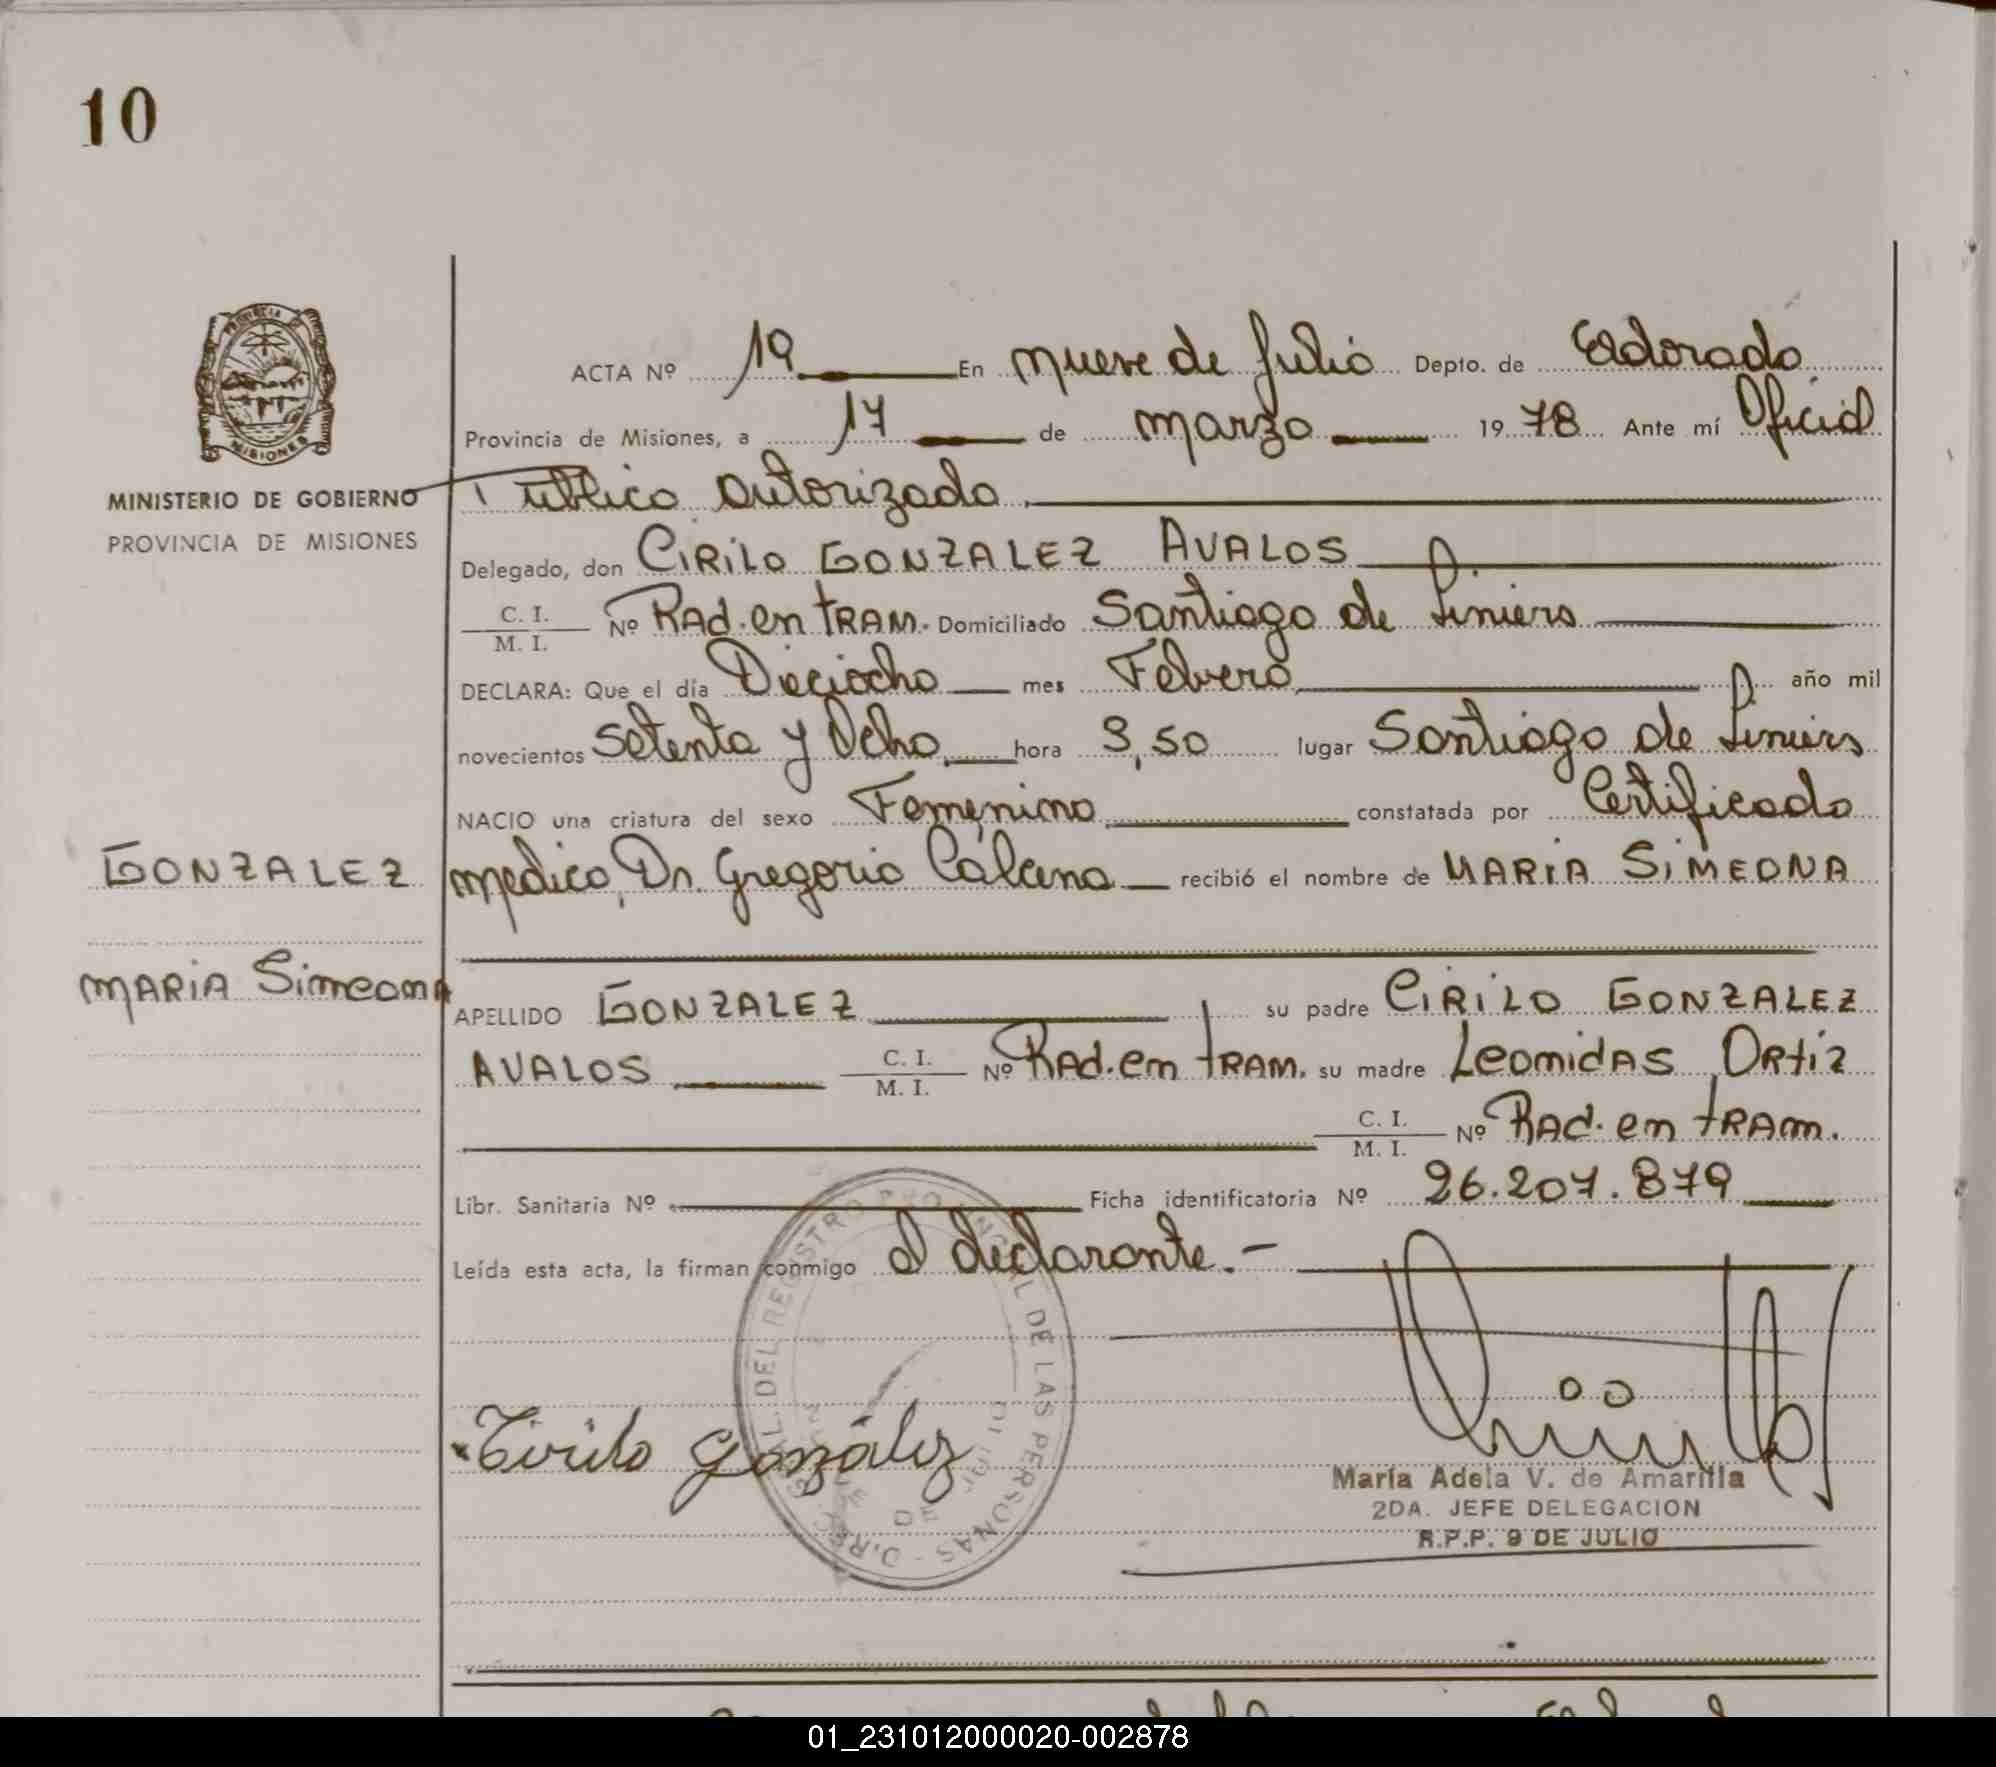 10
PROVINCIA
MISIONES
MINISTERIO DE GOBIERNO
PROVINCIA DE MISIONES
ACTA Nº 19 En nueve de Julio Depto. de Eldorado
Provincia de Misiones, a 17 de marzo 1978 Ante mí Oficial
Publico autorizado
Delegado, don CIRILO GONZALEZ AVALOS
C. I.
M. I. Nº RAd. en TRAM. Domiciliado Santiago de Liniers
DECLARA: Que el día Dieciocho mes Febrero año mil
novecientos Setenta y Ocho hora 3,50 lugar Santiago de Liniers
NACIO una criatura del sexo Femenino constatada por Certificado
GONZALEZ
medico, Dr. Gregorio recibió el nombre de MARIA SIMEONA
MARIA Simeona
APELLIDO GONZALEZ su padre CIRILO GONZALEZ
AVALOS C. I. M. I. Nº RAd. en TRAM. su madre LeonidAS ORtiz
C. I. M. I. Nº RAd. en TRAM.
Libr. Sanitaria Nº Ficha identificatoria Nº 26.207.879
Leída esta acta, la firman conmigo el declarante.-
GRAL. DEL REGISTRO PROVINCIAL DE LAS PERSONAS - DIREC
Cirilo González
María Adela V. de Amarilla
2DA. JEFE DELEGACION
R.P.P. 9 DE JULIO
01_231012000020-002878